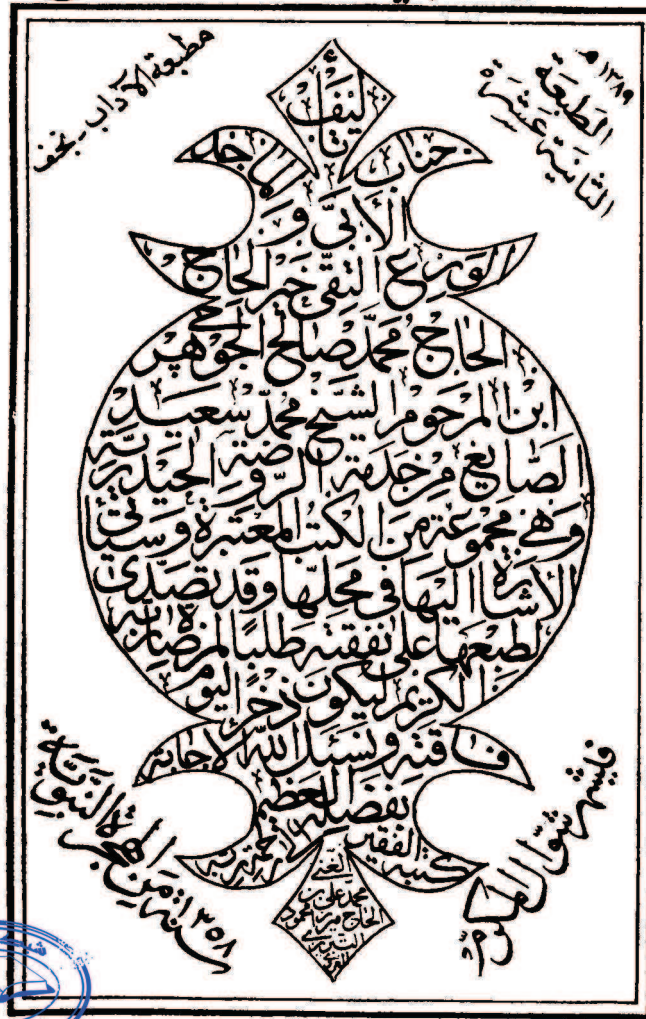 ١٣٨٩ هـ
الطبعة
الثانية عشرة
مطبعة الآداب - نجف
تأليف
جناب الماجد
الأبيّ و
الورع التقي خير الحاج
الحاج محمّد صالح الجوهرجي
ابن المرحوم الشيخ محمّد سعيد
الصايغ من خدمة الروضة الحيدرية
وهي مجموعة من الكتب المعتبرة وسيأتي
الأشارة اليها في محلها وقد تصدى
لطبعها على نفقته طلبًا لمرضاة ربه
الكريم ليكون ذخرا ليوم
فاقته ونسئل الله الاجابة
بفضله العظيم
كتبه الفقير لرحمة ربه
العبد
محمد علي بن
الحاج ميرزا محمود
التبريزي
الغروي
في شهر شوال المكرم
سنة ١٣٥٨ من الهجرة النبوية